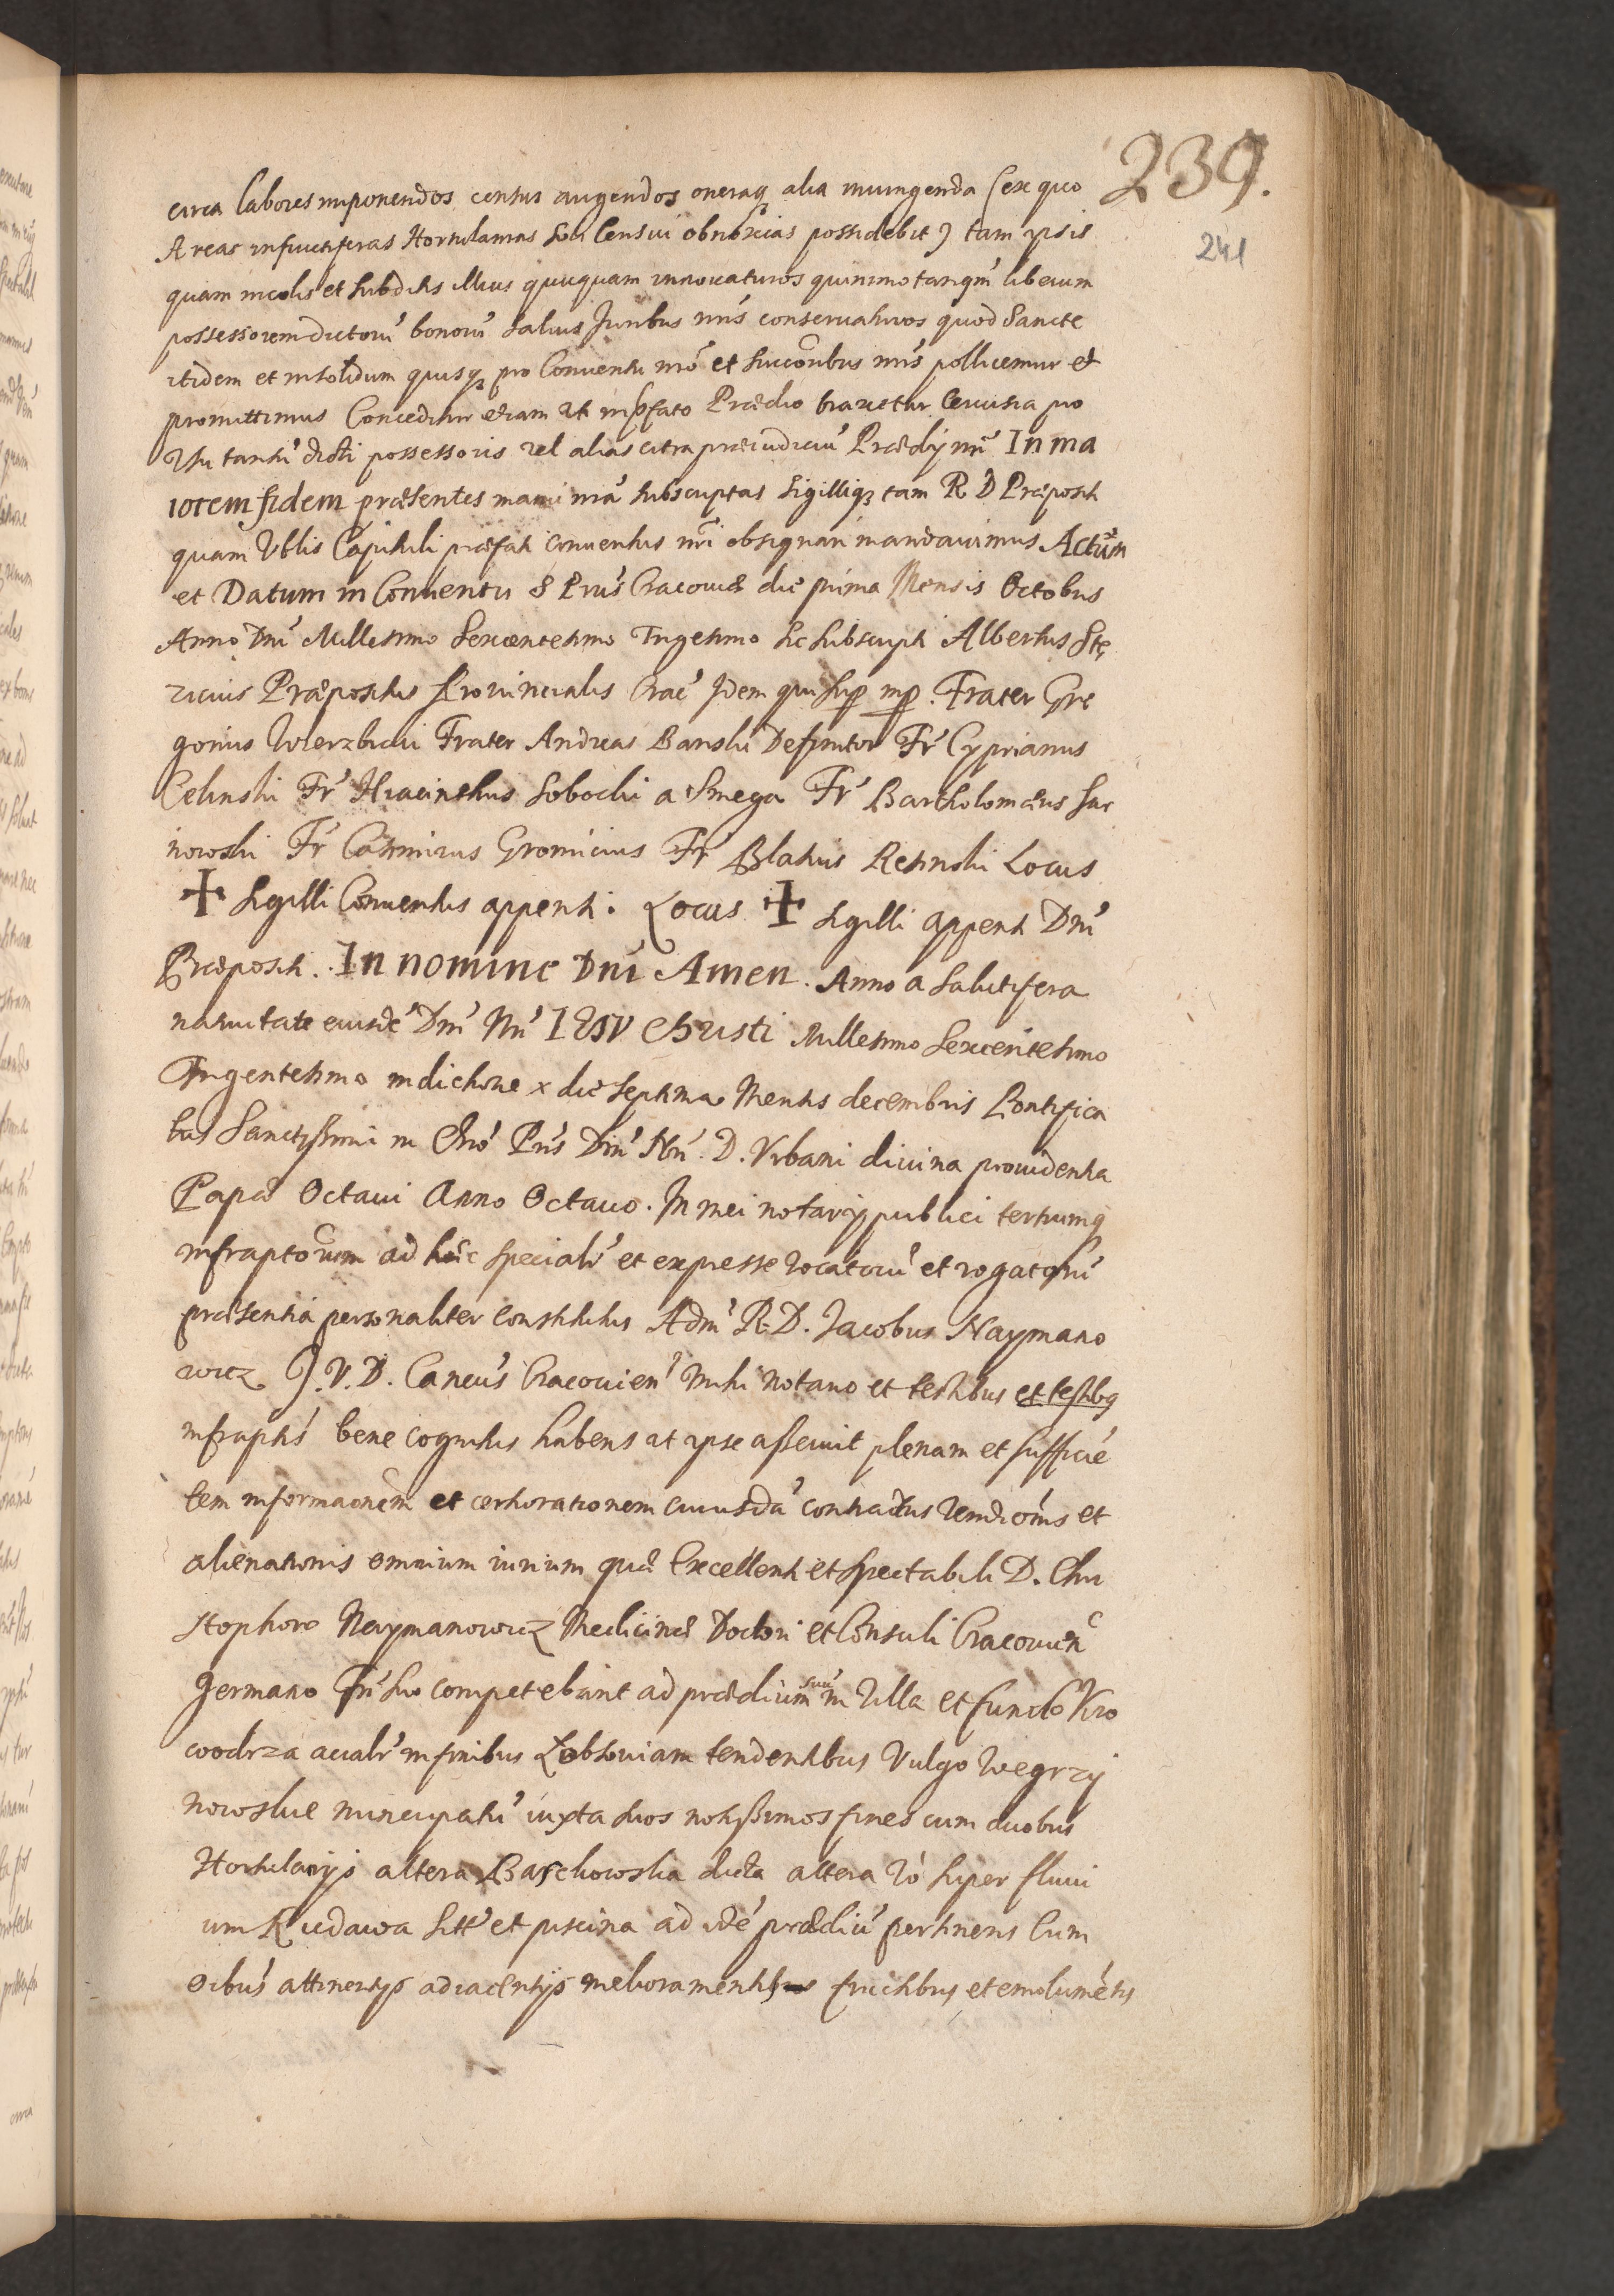 239.
241
circa labores imponendos census augendos oneraq alia iniungenda (ex quo
Areas infructiferas Hortulanias soli Censui obnoxias possidebit) tam ipsis
quam incolis et subditis illius quicquam innovaturos quinimo tanqm̃ liberum
possessorem dictorũ bonorũ salvis Juribus nr̃is conservaturos quod Sancte
itidem et in solidum quisq pro Conventu nr̃o et Succoribus nr̃is pollicemur et
promittimus Conceditur etiam ut in pfato Prædio braxetur Cervisia pro
Usu tantũ dicti possessoris vel alias citra præiudiciũ Prædij nr̃i In ma
iorem fidem præsentes manu nr̃a subscriptas sigilliq tam R D Præpositi
quam Vblis Capituli præfati conventus nr̃i obsignari mandavimus Actum
et Datum in Conventu S Prũs Cracoviæ die prima Mensis Octobris
Anno Dni Millesimo Sexcentesimo Trigesimo sic subscripti Albertus Stę
zicius Præpositus Provincialis Crac̃ Idem qui sup mp. Frater Gre
gorius Wierzbicki Frater Andreas Banski Definitor Fr̃ Cyprianus
Celinski Fr̃ Hiacinthus Sobocki a Smega Fr̃ Bartholomæus Sar
nowski Fr̃ Casimirus Gromicius Fr̃ Blasius Resinski Locus
✠ Sigilli Conventus appensi. Locus ✠ sigilli appensi Dni
Præpositi. In nomine Dni Amen. Anno a Salutifera
nativitate eiusdẽ Dni Nri IESV Christi Millesimo Sexcentesimo
Trigentesimo indictione x die septima Mensis decembris Pontifica
tus Sanctissimi in Chro Pris Dni Nri. D. Urbani divina providentia
Papæ Octavi Anno Octavo. In mei notarij publici testiumq
infraptorum ad hæc specialr̃ et expresse vocatorũ et rogatorũ
præsentia personaliter constitutus Adm̃ R. D. Jacobus Naymano
wicz J. V. D. Cancũs Cracovien̄ Mihi Notario et testibus et testibq
infraptis bene cognitus habens ut ipse asseruit plenam et sufficiẽ
tem informaonem et certiorationem cuiusdã contractus Vendiõnis et
alienationis omnium iurium quæ Excellenti et Spectabili D. Chri
stophoro Naymanowicz Medicinæ Doctori et Consuli Cracovien̄
germano Fri suo competebant ad prædium suũ in Villa et fundo Kro
wodrza acialr̃ in finibus Łobsoviam tendentibus Vulgo Wegrzy
nowskie nuncupatũ iuxta suos notissimos fines cum duobus
Hortulanijs altera Baschowska dicta altera vo super fluvi
um Rudawa sitt̃ et piscina ad idẽ prædiũ pertinens Cum
oibus attinentijs adiacentijs melioramentis fructibus et emolumẽtis